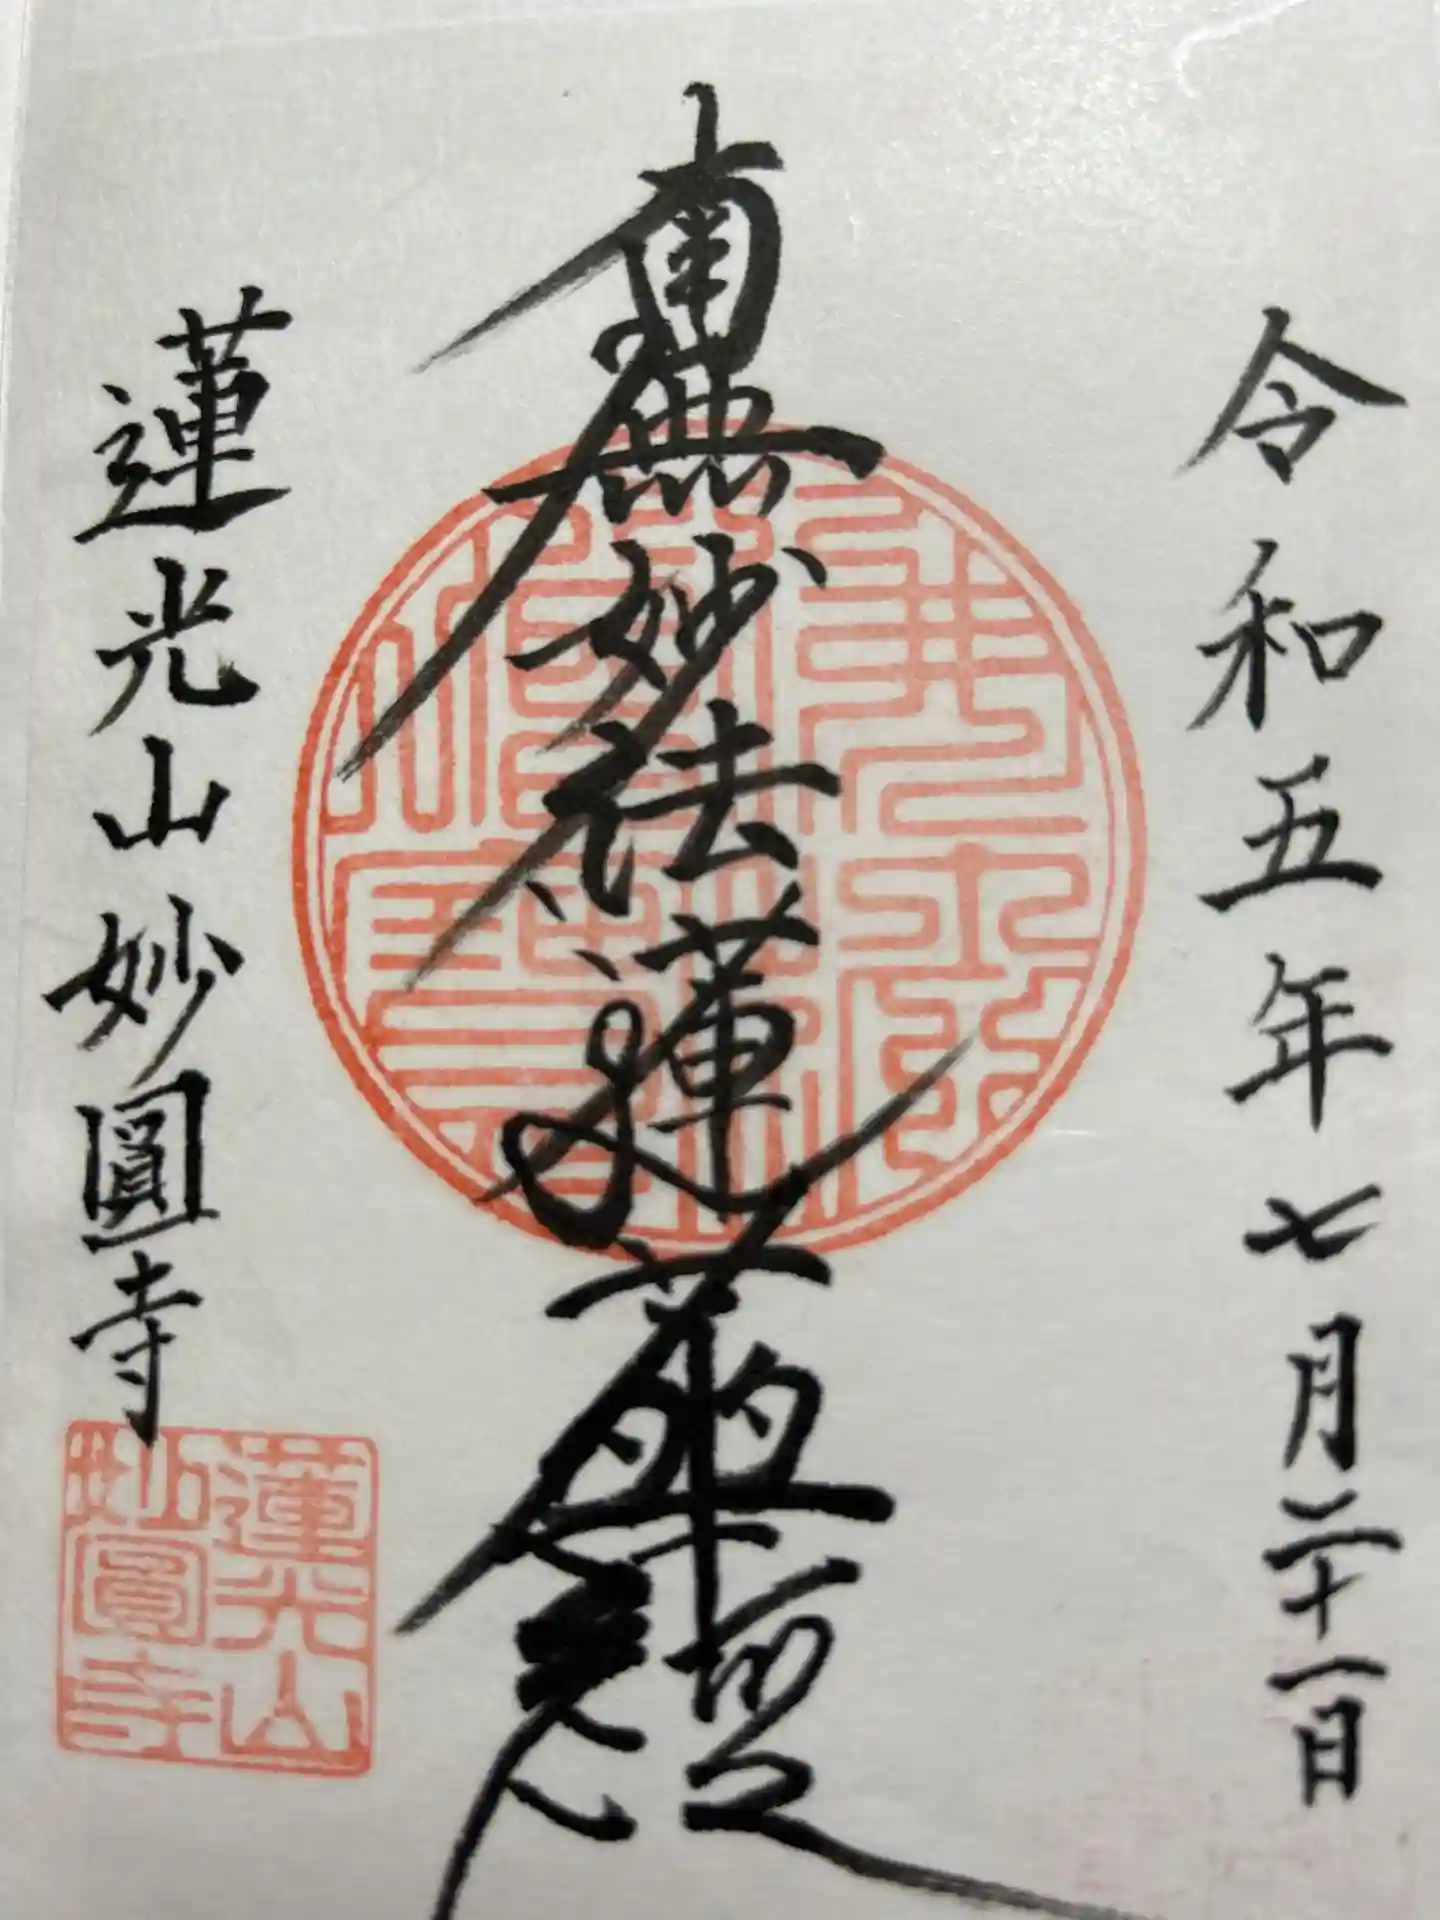 令和五年七月二十一日
南無妙法蓮華経
蓮光山妙圓寺
蓮光山
妙圓寺